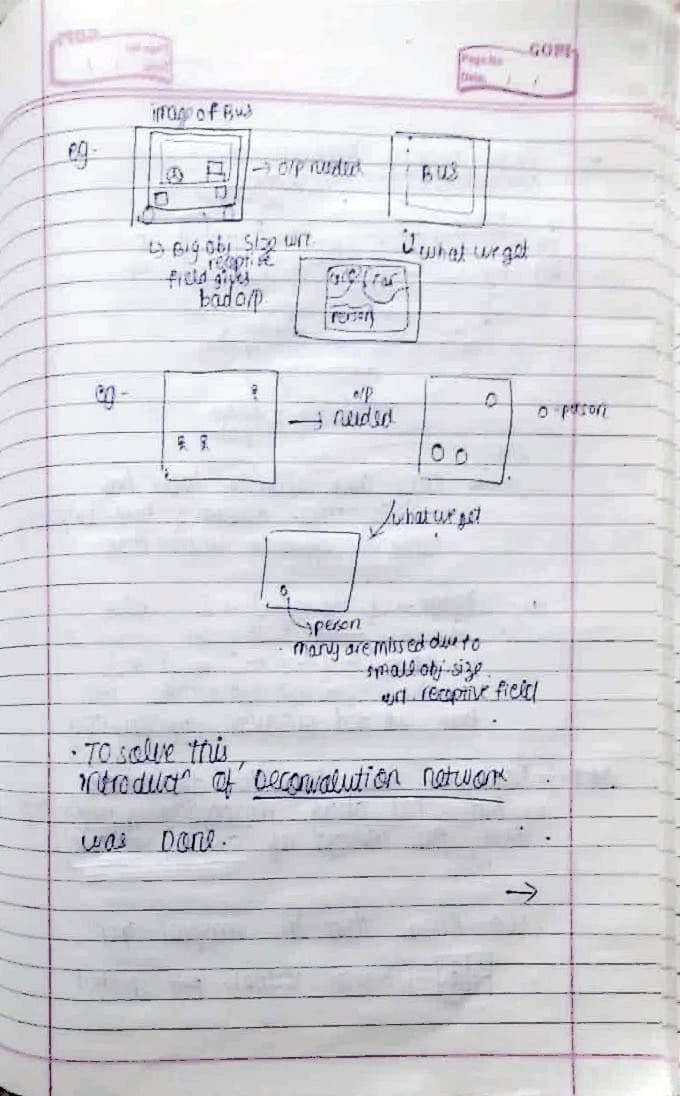 GOPI
Page No.
Date: / /
image of Bus
eg -
→ O/P needed
BUS
↳ Big obj size wrt
receptive
field gives
bad o/p
what we get
car
person
eg -
o/p
→ needed
o - person
what we get
→ person
many are missed due to
small obj. size
wrt. receptive field
· To solve this,
introductⁿ of Deconvolution network
was Done.
→